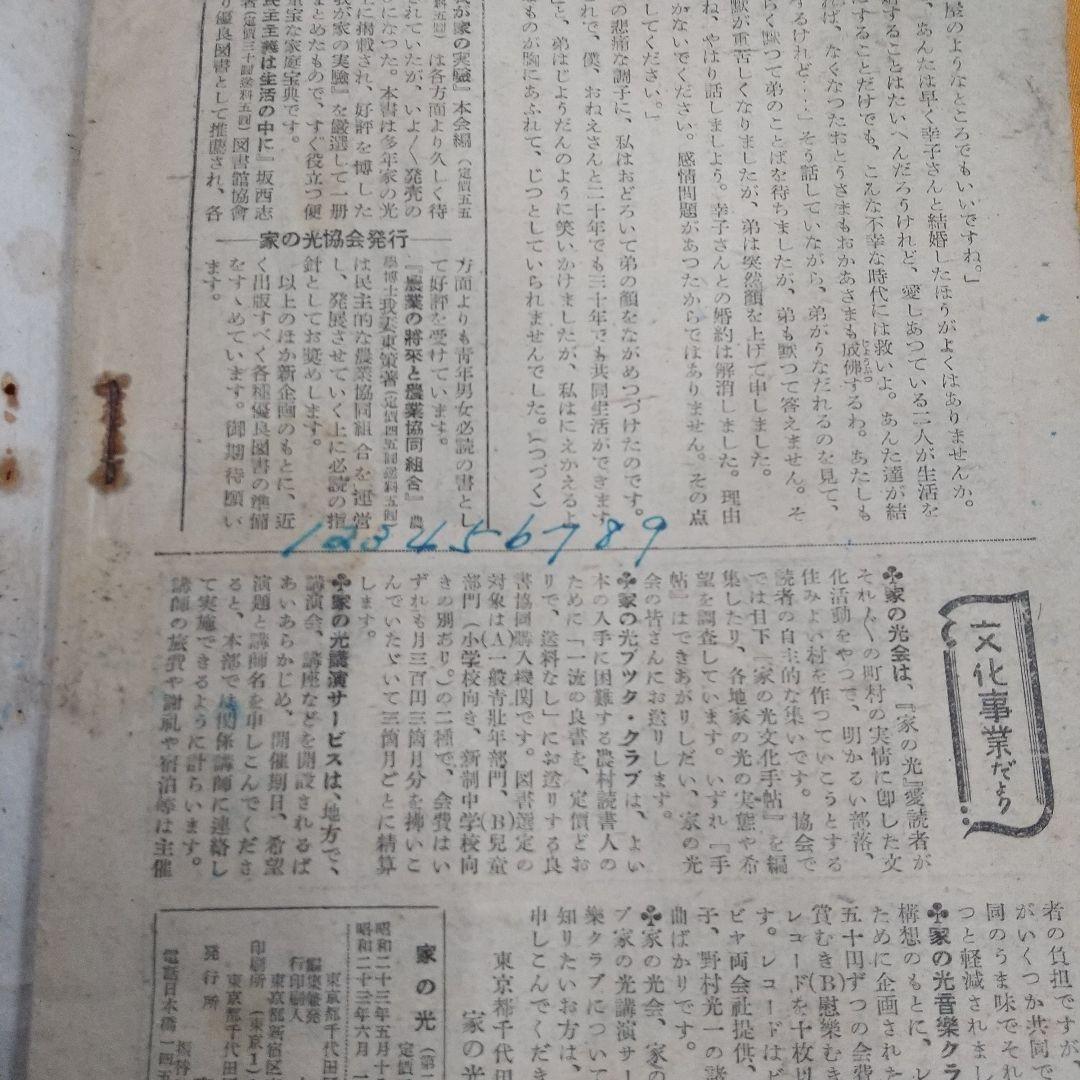 屋のようなところでもいいですね。」
、あんたは早く幸子さんと結婚したほうがよくはありませんか。
することはたいへんだろうけれど、愛しあつている二人が生活を
にすることだけでも、こんな不幸な時代には救いよ。あんた達が結
ば、なくなつたおとうさまもおかあさまも成佛するわ。あたしも
じょうぶつ
するけれど‥‥」そう話していながら、弟がうなだれるのを見て、
らく默つて弟のことばを待ちましたが、弟も默つて答えません。そ
默が重苦しくなりましたが、弟は突然顔を上げて申しました。
ね、やはり話しましよう。幸子さんとの婚約は解消しました。理由
かないでください。感情問題があつたからではありません。その点
してください。」
の悲痛な調子に、私はおどろいて弟の顔をながめつづけたのです。
れで、僕、おねえさんと二十年でも三十年でも共同生活ができます
と、弟はじようだんのように笑いかけましたが、私はにえかえるよ
ものが胸にあふれて、じつとしていられませんでした。(つづく)
が家の実驗』本会編(定價五五
円送料五円)は各方面より久しく待
されていたが、いよ〳〵発売の
びになつた。本書は多年家の光
上に掲載され、好評を博した
我が家の実驗』を厳選して一册
まとめたもので、すぐ役立つ便
重宝な家庭宝典です。
民主主義は生活の中に』坂西志
著(定價三十円送料五円)図書館協會
り優良図書として推薦され、各
家の光協会発行
方面よりも青年男女必読の書とし
て好評を受けています。
『農業の將來と農業協同組合』農
學博士我妻東策著(定價四五円送料五円)
は民主的な農業協同組合を運営
し、発展させていく上に必読の指
針としてお奬めします。
以上のほか新企画のもとに、近
く出版すべく各種優良図書の準備
をすゝめています。御期待願い
ます。
123456789
文化事業だより
♣家の光会は、『家の光』愛読者が
それ〴〵の町村の実情に卽した文
化活動をやつて、明かるい部落、
住みよい村を作つていこうとする
読者の自主的な集いです。協会で
では目下『家の光文化手帖』を編
集したり、各地家の光の実態や希
望を調査しています。いずれ『手
帖』はできあがりしだい、家の光
会の皆さんにお送りします。
♣家の光ブック・クラブは、よい
本の入手に困難する農村読書人の
ために「一流の良書を、定價どお
りで、送料なし」にお送りする良
書協同購入機関です。図書選定の
対象は(A)一般青壯年部門、(B)兒童
部門(小学校向き、新制中学校向
きの別あり。)の二種で、会費はい
ずれも月三百円三箇月分を拂いこ
んでいたゞいて三箇月ごとに精算
します。
♣家の光講演サービスは、地方で、
講演会、講座などを開設されるば
あいあらかじめ、開催期日、希望
演題と講師名を申しこんでくださ
ると、本部では関係講師に連絡し
て実施できるように計らいます。
講師の旅費や謝礼や宿泊等は主催
者の負担ですが
がいくつか共同で
同のうま味でそれ
つと軽減されまし
♣家の光音樂クラ
構想のもとに、レ
ために企画された
五十円ずつの会費
賞むき(B)慰樂むき
レコードを十枚以
す。レコードはビ
ビヤ両会社提供、
子、野村光一の諸
曲ばかりです。
♣家の光会、家の
ブ家の光講演サー
樂クラブについて
知りたいお方は、
申しこんでくだき
東京都千代田
家の光
家の光(第二
定價
昭和二十三年五月十
昭和二十三年六月一
東京都千代田
編集兼発
行印刷人
東京都新宿区
印刷所(東京1)
東京都千代田
発行所
電話日本橋一四五
振替